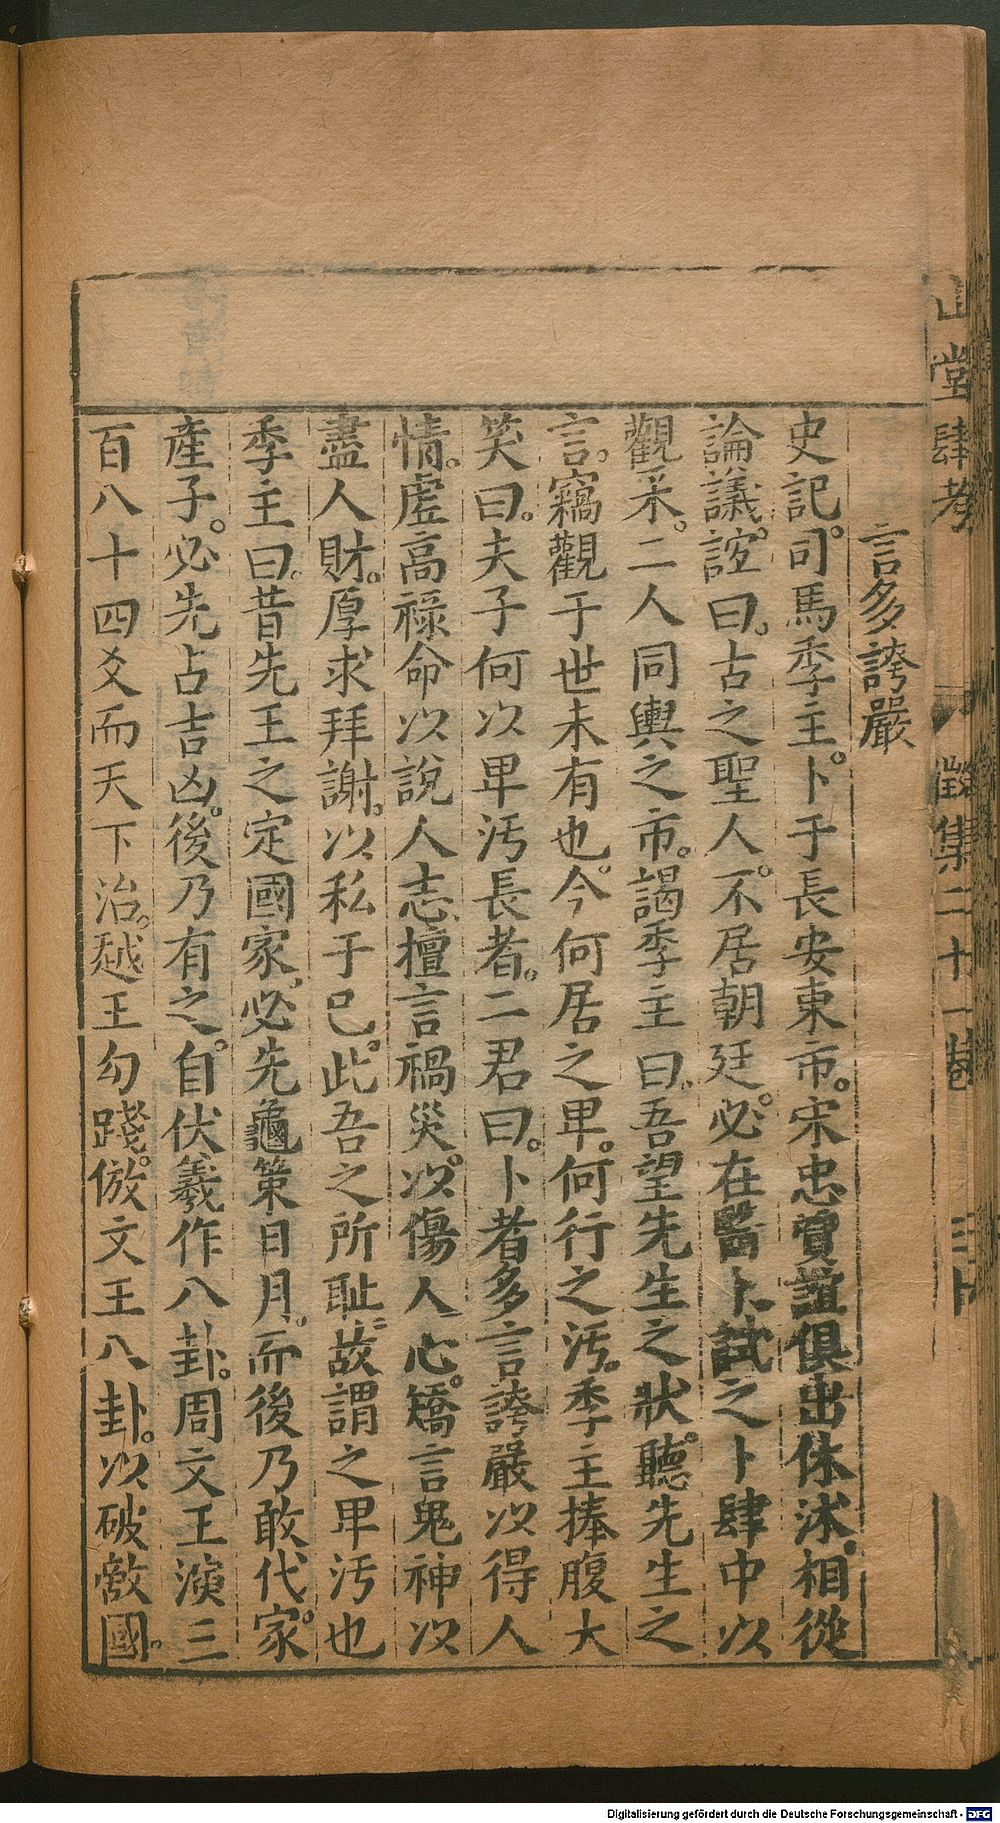 山堂肆考
徵集二十一卷
言多誇嚴
史記司馬季主卜于長安東市宋忠賈誼俱出休沐相從
論議誼曰古之聖人不居朝廷必在醫卜試之卜肆中以
觀采二人同輿之市謁季主曰吾望先生之狀聽先生之
言竊觀于世未有也今何居之卑何行之汚季主捧腹大
笑曰夫子何以卑汚長者二君曰卜者多言誇嚴以得人
情虛高祿命以說人志擅言禍災以傷人心矯言鬼神以
盡人財厚求拜謝以私于己此吾之所耻故謂之卑汚也
季主曰昔先王之定國家必先龜策日月而後乃敢代家
產子必先占吉凶後乃有之自伏羲作八卦周文王演三
百八十四爻而天下治越王勾踐倣文王八卦以破敵國
Digitalisierung gefördert durch die Deutsche Forschungsgemeinschaft - DFG